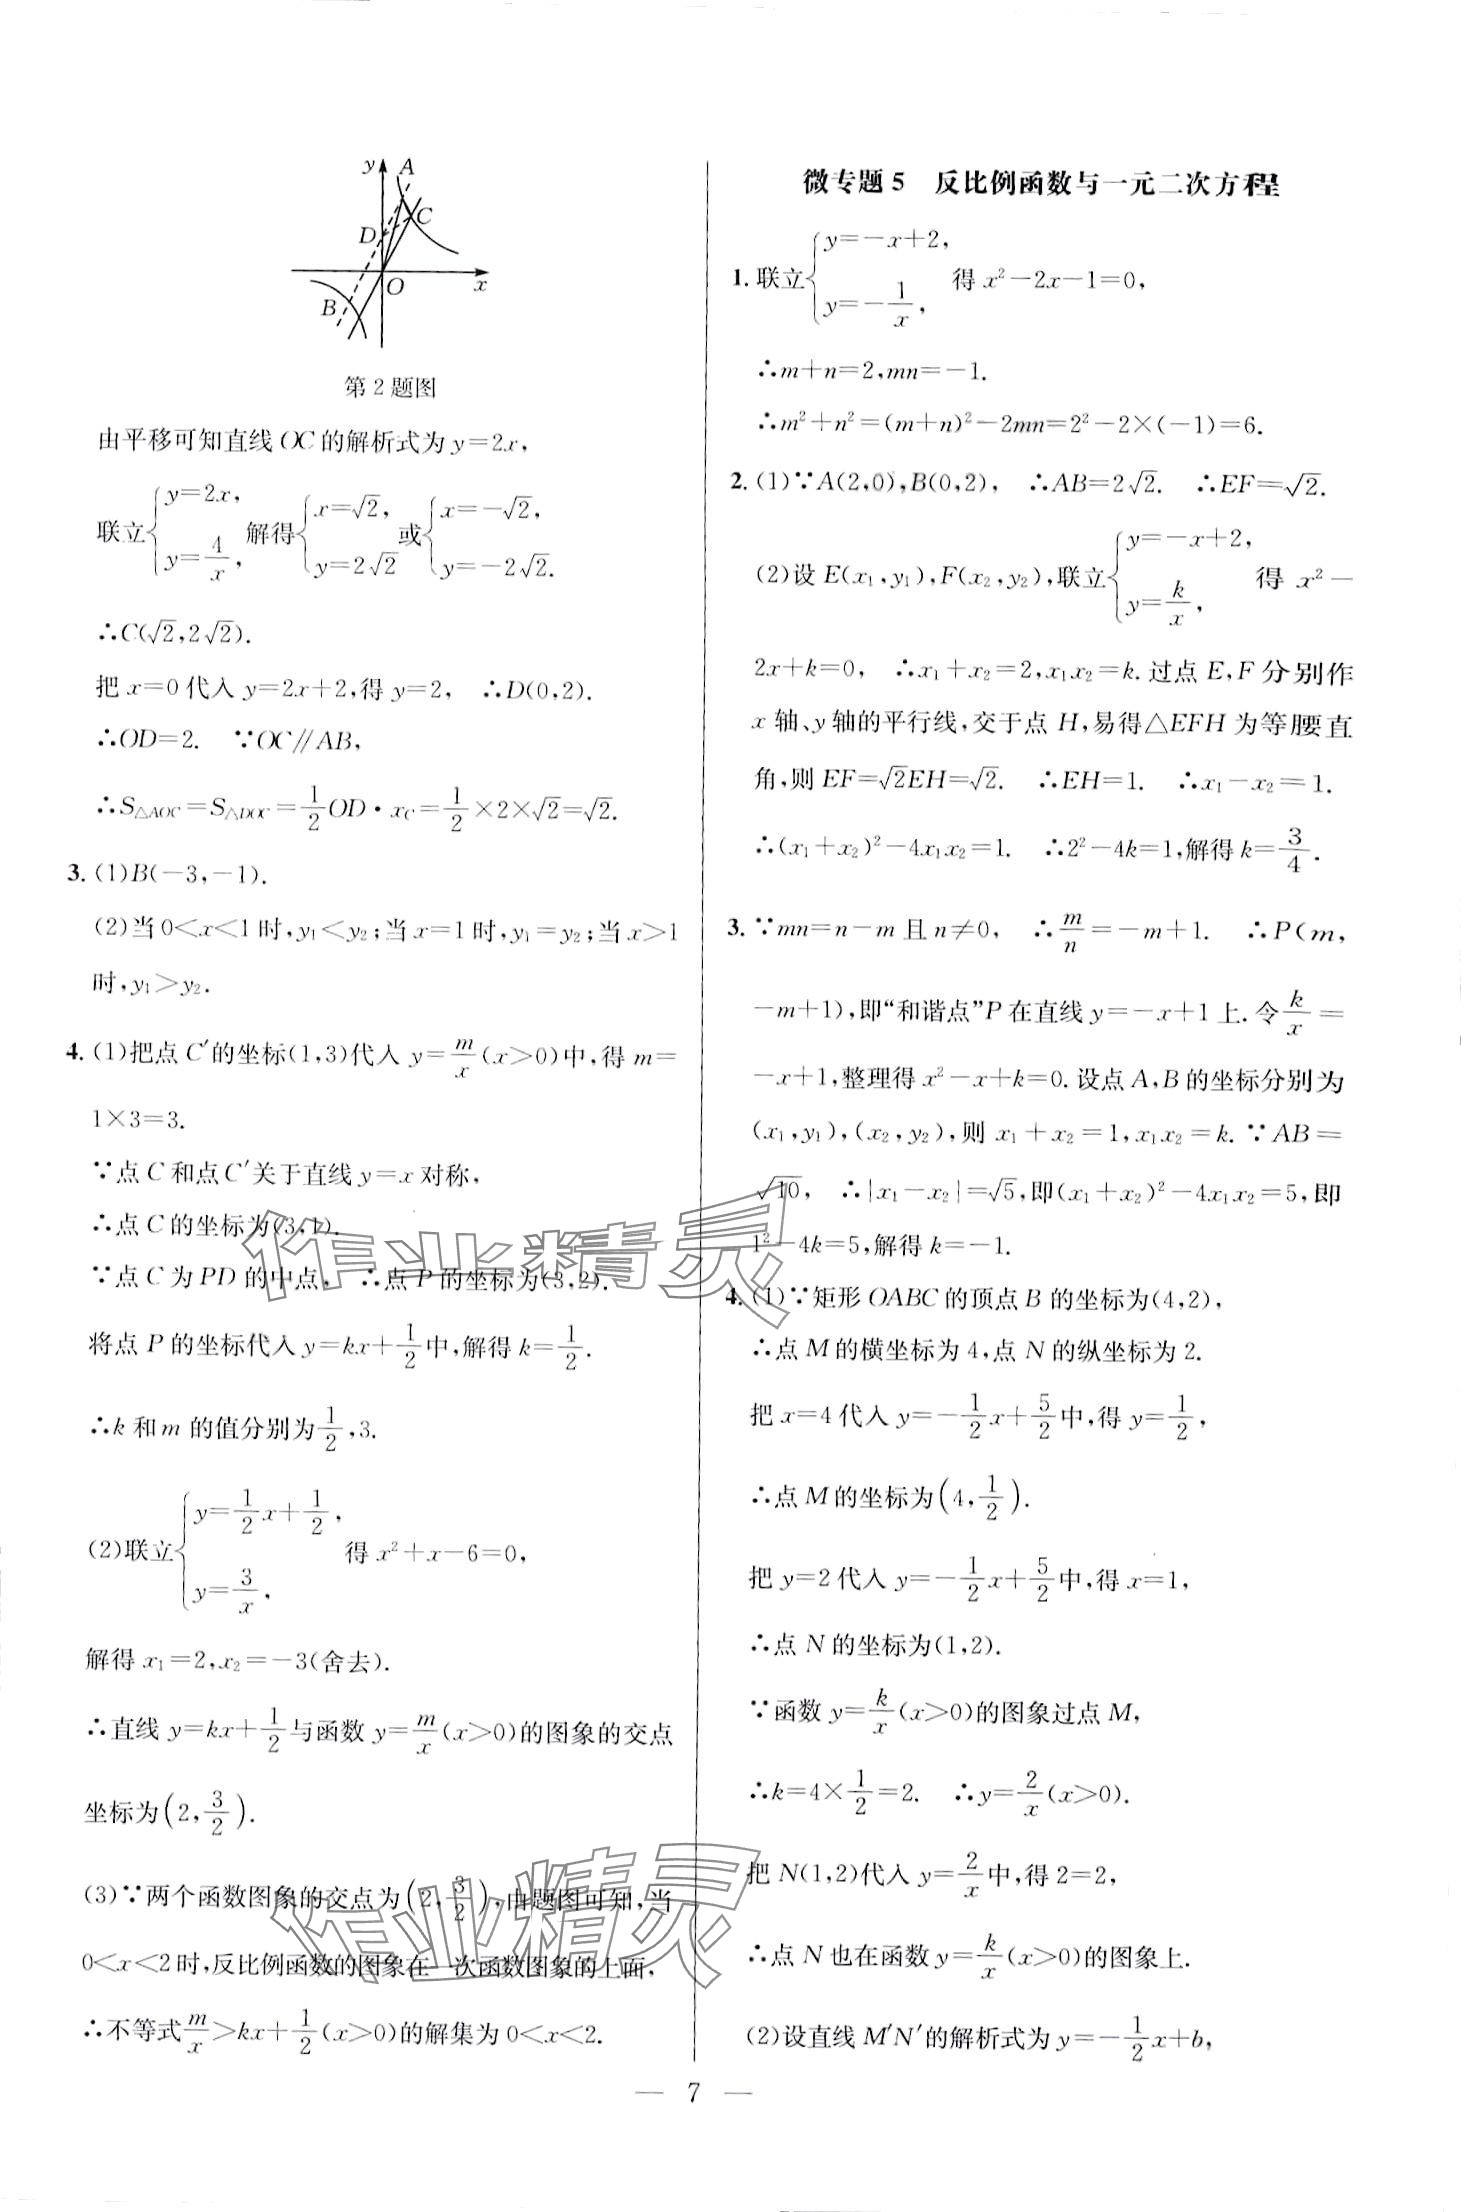 y A
C
D
O x
B
第2题图
由平移可知直线OC的解析式为y=2x,
联立{y=2x, y=4/x, 解得{x=√2, y=2√2 或{x=-√2, y=-2√2.
∴C(√2,2√2).
把x=0代入y=2x+2,得y=2, ∴D(0,2).
∴OD=2. ∵OC∥AB,
∴S△AOC=S△DOC=1/2OD·x_C=1/2×2×√2=√2.
3.(1)B(-3,-1).
(2)当0<x<1时,y₁<y₂;当x=1时,y₁=y₂;当x>1
时,y₁>y₂.
4.(1)把点C′的坐标(1,3)代入y=m/x(x>0)中,得m=
1×3=3.
∵点C和点C′关于直线y=x对称,
∴点C的坐标为(3,1).
∵点C为PD的中点, ∴点P的坐标为(3,2).
将点P的坐标代入y=kx+1/2中,解得k=1/2.
∴k和m的值分别为1/2,3.
(2)联立{y=1/2x+1/2, y=3/x, 得x²+x-6=0,
解得x₁=2,x₂=-3(舍去).
∴直线y=kx+1/2与函数y=m/x(x>0)的图象的交点
坐标为(2,3/2).
(3)∵两个函数图象的交点为(2,3/2),由题图可知,当
0<x<2时,反比例函数的图象在一次函数图象的上面,
∴不等式m/x>kx+1/2(x>0)的解集为0<x<2.
微专题5 反比例函数与一元二次方程
1.联立{y=-x+2, y=-1/x, 得x²-2x-1=0,
∴m+n=2,mn=-1.
∴m²+n²=(m+n)²-2mn=2²-2×(-1)=6.
2.(1)∵A(2,0),B(0,2), ∴AB=2√2. ∴EF=√2.
(2)设E(x₁,y₁),F(x₂,y₂),联立{y=-x+2, y=k/x, 得x²-
2x+k=0, ∴x₁+x₂=2,x₁x₂=k.过点E,F分别作
x轴、y轴的平行线,交于点H,易得△EFH为等腰直
角,则EF=√2EH=√2. ∴EH=1. ∴x₁-x₂=1.
∴(x₁+x₂)²-4x₁x₂=1. ∴2²-4k=1,解得k=3/4.
3.∵mn=n-m且n≠0, ∴m/n=-m+1. ∴P(m,
-m+1),即“和谐点”P在直线y=-x+1上.令k/x=
-x+1,整理得x²-x+k=0.设点A,B的坐标分别为
(x₁,y₁),(x₂,y₂),则x₁+x₂=1,x₁x₂=k.∵AB=
√10, ∴|x₁-x₂|=√5,即(x₁+x₂)²-4x₁x₂=5,即
1²-4k=5,解得k=-1.
4.(1)∵矩形OABC的顶点B的坐标为(4,2),
∴点M的横坐标为4,点N的纵坐标为2.
把x=4代入y=-1/2x+5/2中,得y=1/2,
∴点M的坐标为(4,1/2).
把y=2代入y=-1/2x+5/2中,得x=1,
∴点N的坐标为(1,2).
∵函数y=k/x(x>0)的图象过点M,
∴k=4×1/2=2. ∴y=2/x(x>0).
把N(1,2)代入y=2/x中,得2=2,
∴点N也在函数y=k/x(x>0)的图象上.
(2)设直线M′N′的解析式为y=-1/2x+b,
作业精灵
作业精灵
— 7 —